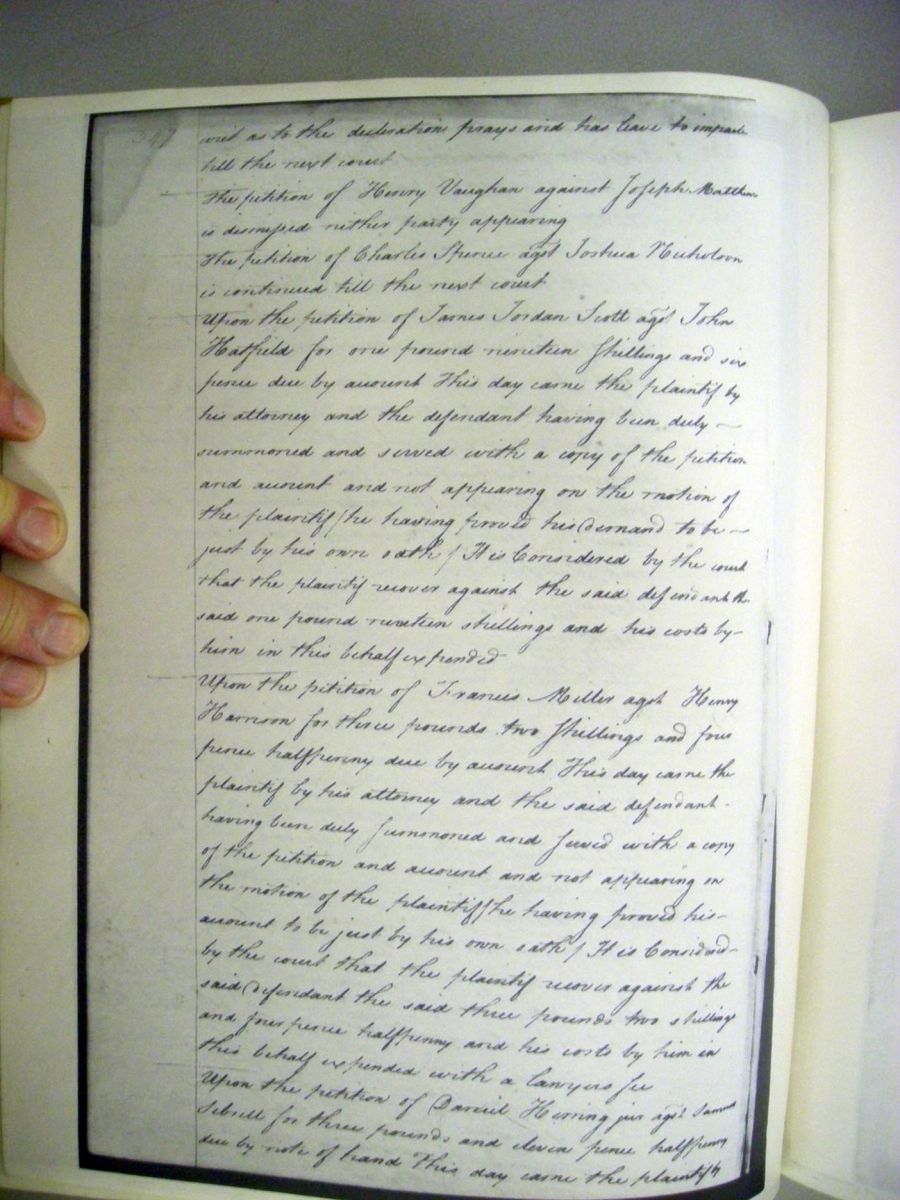 writ as to the decleration prays and has leave to imparle
till the next court
The petition of Henry Vaughan against Joseph Matthews
is dismissed nither party appearing
The petition of Charles Spence agst Joshua Nicholson
is continued till the next court
Upon the petition of James Jordan Scott agst John
Hatfield for one pound nineteen shillings and six
pence due by account This day came the plaintif by
his attorney and the defendant having been duly —
summoned and served with a copy of the petition
and account and not appearing on the motion of
the plaintif /he having proved his Demand to be —
just by his own oath / It is Considered by the court
that the plaintif recover against the said defendant the
said one pound nineteen shillings and his costs by —
him in this behalf expended
Upon the petition of Francis Miller agst Henry
Harrison for three pounds two shillings and four
pence halfpenny due by account This day came the
plaintif by his attorney and the said defendant -
having been duly summoned and served with a copy
of the petition and account and not appearing on
the motion of the plaintiff /he having proved his —
account to be just by his own oath / It is Considered —
by the court that the plaintif recover against the
said Defendant the said three pounds two shillings
and four pence halfpenny and his costs by him in
this behalf expended with a lawyers fee
Upon the petition of Daniel Herring jur agst Samuel
Sebrell for three pounds and eleven pence halfpenny
due by note of hand This day came the plaintiff